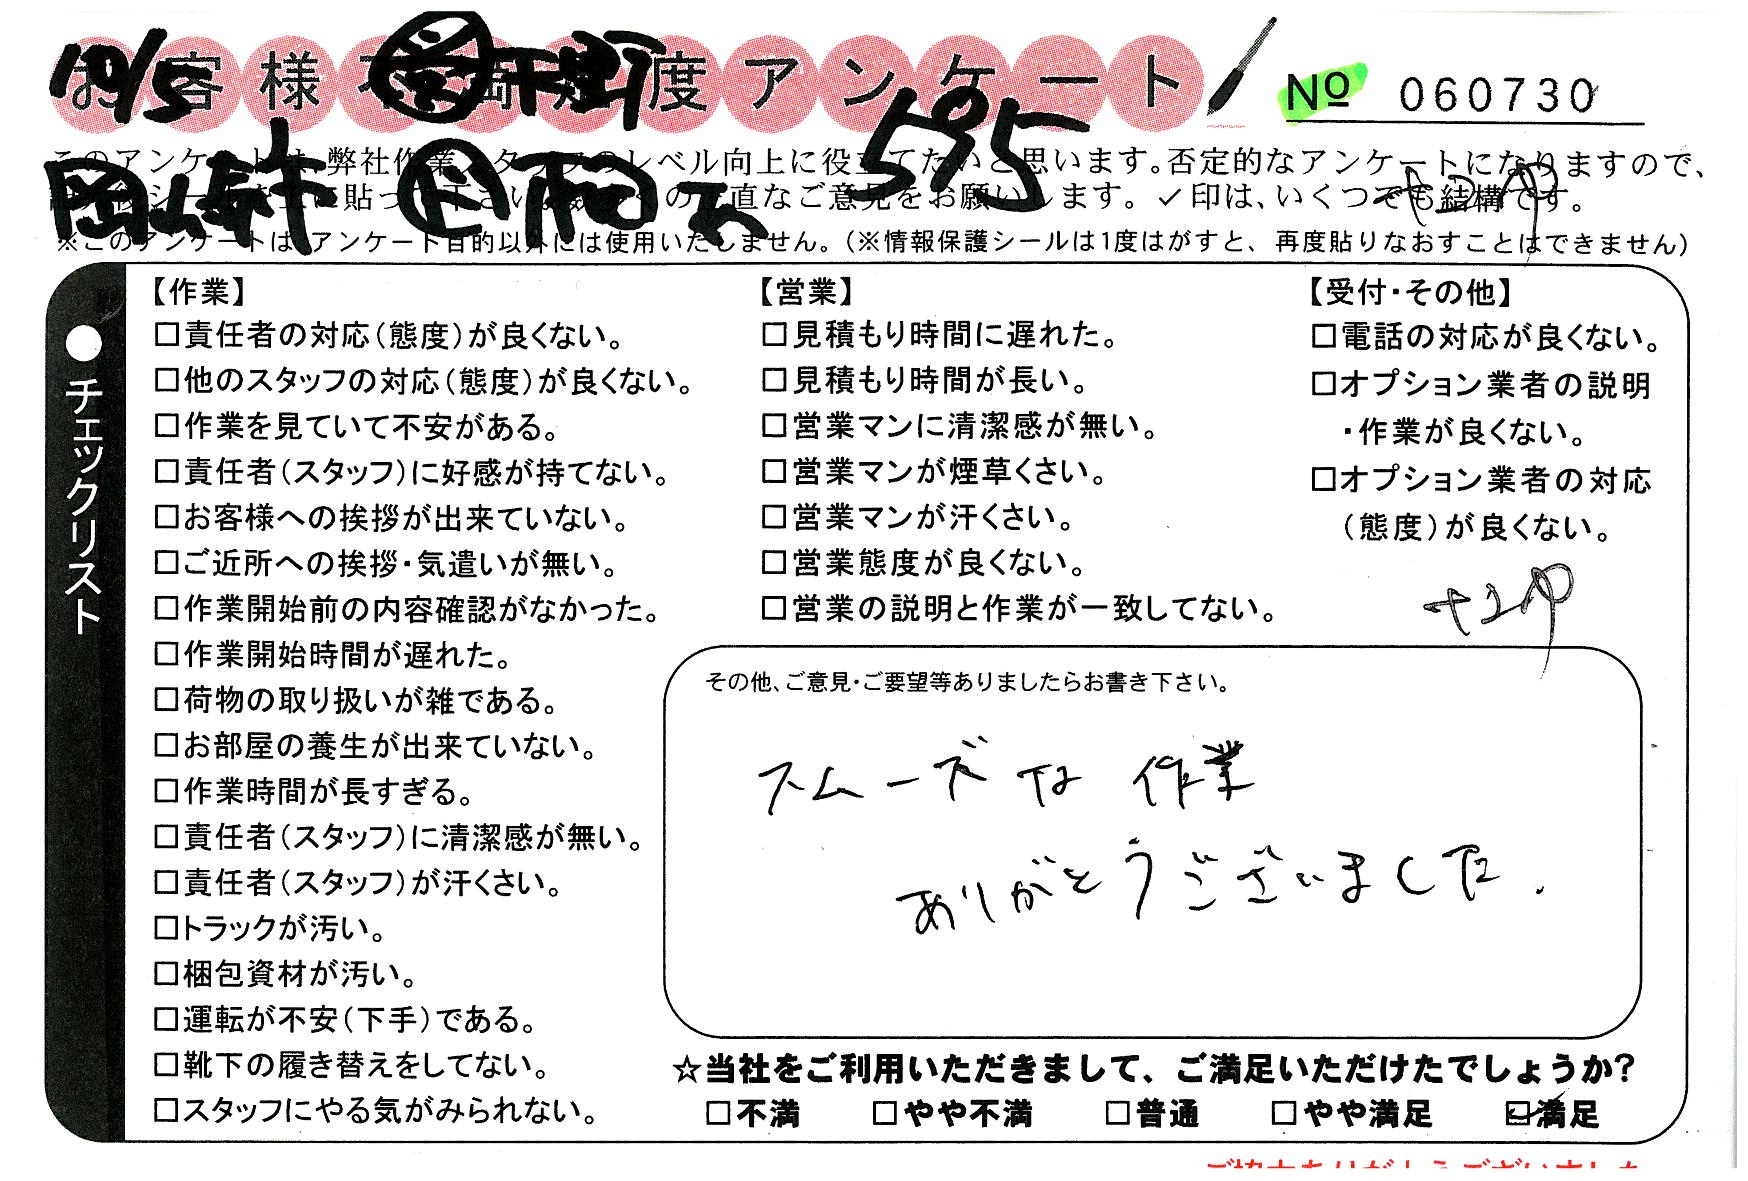 10/5
お客様不満足度アンケート
№ 060730
595
このアンケートは、弊社作業スタッフのレベル向上に役立てたいと思います。否定的なアンケートになりますので、
※このアンケートは、アンケート目的以外には使用いたしません。（※情報保護シールは1度はがすと、再度貼りなおすことはできません）
●チェックリスト
【作業】
□責任者の対応（態度）が良くない。
□他のスタッフの対応（態度）が良くない。
□作業を見ていて不安がある。
□責任者（スタッフ）に好感が持てない。
□お客様への挨拶が出来ていない。
□ご近所への挨拶・気遣いが無い。
□作業開始前の内容確認がなかった。
□作業開始時間が遅れた。
□荷物の取り扱いが雑である。
□お部屋の養生が出来ていない。
□作業時間が長すぎる。
□責任者（スタッフ）に清潔感が無い。
□責任者（スタッフ）が汗くさい。
□トラックが汚い。
□梱包資材が汚い。
□運転が不安（下手）である。
□靴下の履き替えをしてない。
□スタッフにやる気がみられない。
【営業】
□見積もり時間に遅れた。
□見積もり時間が長い。
□営業マンに清潔感が無い。
□営業マンが煙草くさい。
□営業マンが汗くさい。
□営業態度が良くない。
□営業の説明と作業が一致してない。
【受付・その他】
□電話の対応が良くない。
□オプション業者の説明
・作業が良くない。
□オプション業者の対応
（態度）が良くない。
その他、ご意見・ご要望等ありましたらお書き下さい。
スムーズな作業
ありがとうございました.
☆当社をご利用いただきまして、ご満足いただけたでしょうか?
□不満 □やや不満 □普通 □やや満足 ☑満足
ご協力ありがとうございました